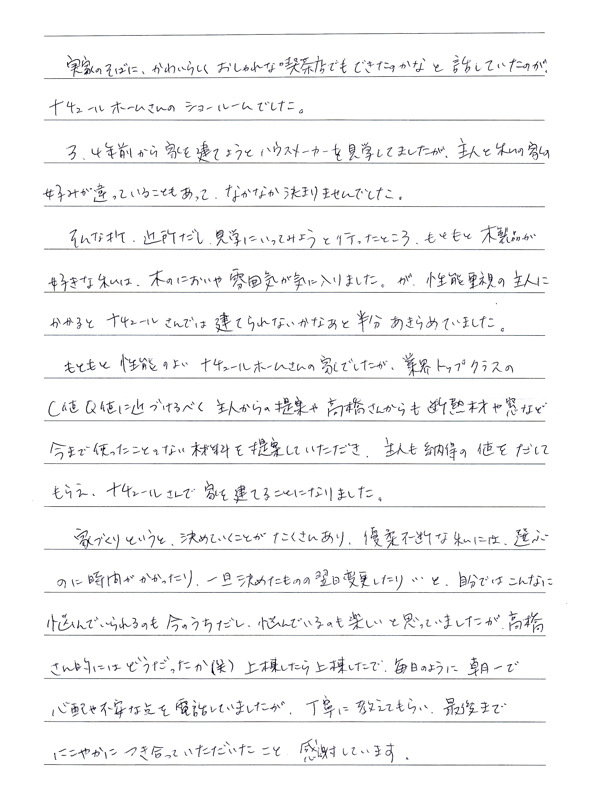 実家のそばに、かわいらしくおしゃれな喫茶店でもできたのかなと話していたのが、
ナチュールホームさんのショールームでした。
3、4年前から家を建てようとハウスメーカーを見学してましたが、主人と私の家の
好みが違っていることもあって、なかなか決まりませんでした。
そんな折、近所だし、見学にいってみようと行ったところ、もともと木製品が
好きな私は、木のにおいや雰囲気が気に入りました。が、性能重視の主人に
かかると ナチュールさんでは建てられないかなあと半分あきらめていました。
もともと性能のよい ナチュールホームさんの家でしたが、業界トップクラスの
C値Q値に近づけるべく 主人からの提案や高橋さんからも断熱材や窓など
今まで使ったことのない材料を提案していただき、主人も納得の値をだして
もらえ、ナチュールさんで家を建てることになりました。
家づくりというと、決めていくことがたくさんあり、優柔不断な私には、選ぶ
のに時間がかかったり、一旦決めたものの翌日変更したり…と、自分ではこんなに
悩んでいられるのも今のうちだし、悩んでいるのも楽しいと思っていましたが、高橋
さん的にはどうだったか(笑) 上棟したら上棟したで、毎日のように朝一で
心配や不安な点を電話していましたが、丁寧に教えてもらい、最後まで
にこやかにつき合っていただいたこと 感謝しています。